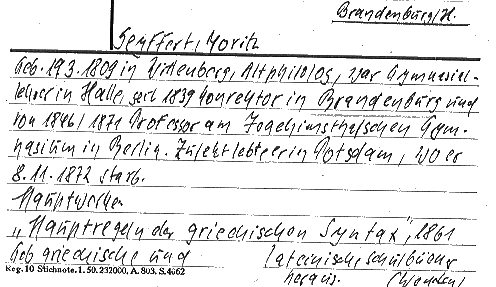 Brandenburg/H.
Seyffert, Moritz
Geb. 19.3.1809 in Wittenberg, Altphilolog, war Gymnasial-
lehrer in Halle, seit 1839 Konrektor in Brandenburg und
von 1846/1871 Professor am Joachimsthalschen Gym-
nasium in Berlin. Zuletzt lebte er in Potsdam, wo er
8.11.1872 starb.
Hauptwerke:
„Hauptregeln der griechischen Syntax", 1861
Gab griechische und lateinische Schulbücher
heraus.
Keg. 10 Stichnote. 1. 50. 232000. A. 803. S. 4662